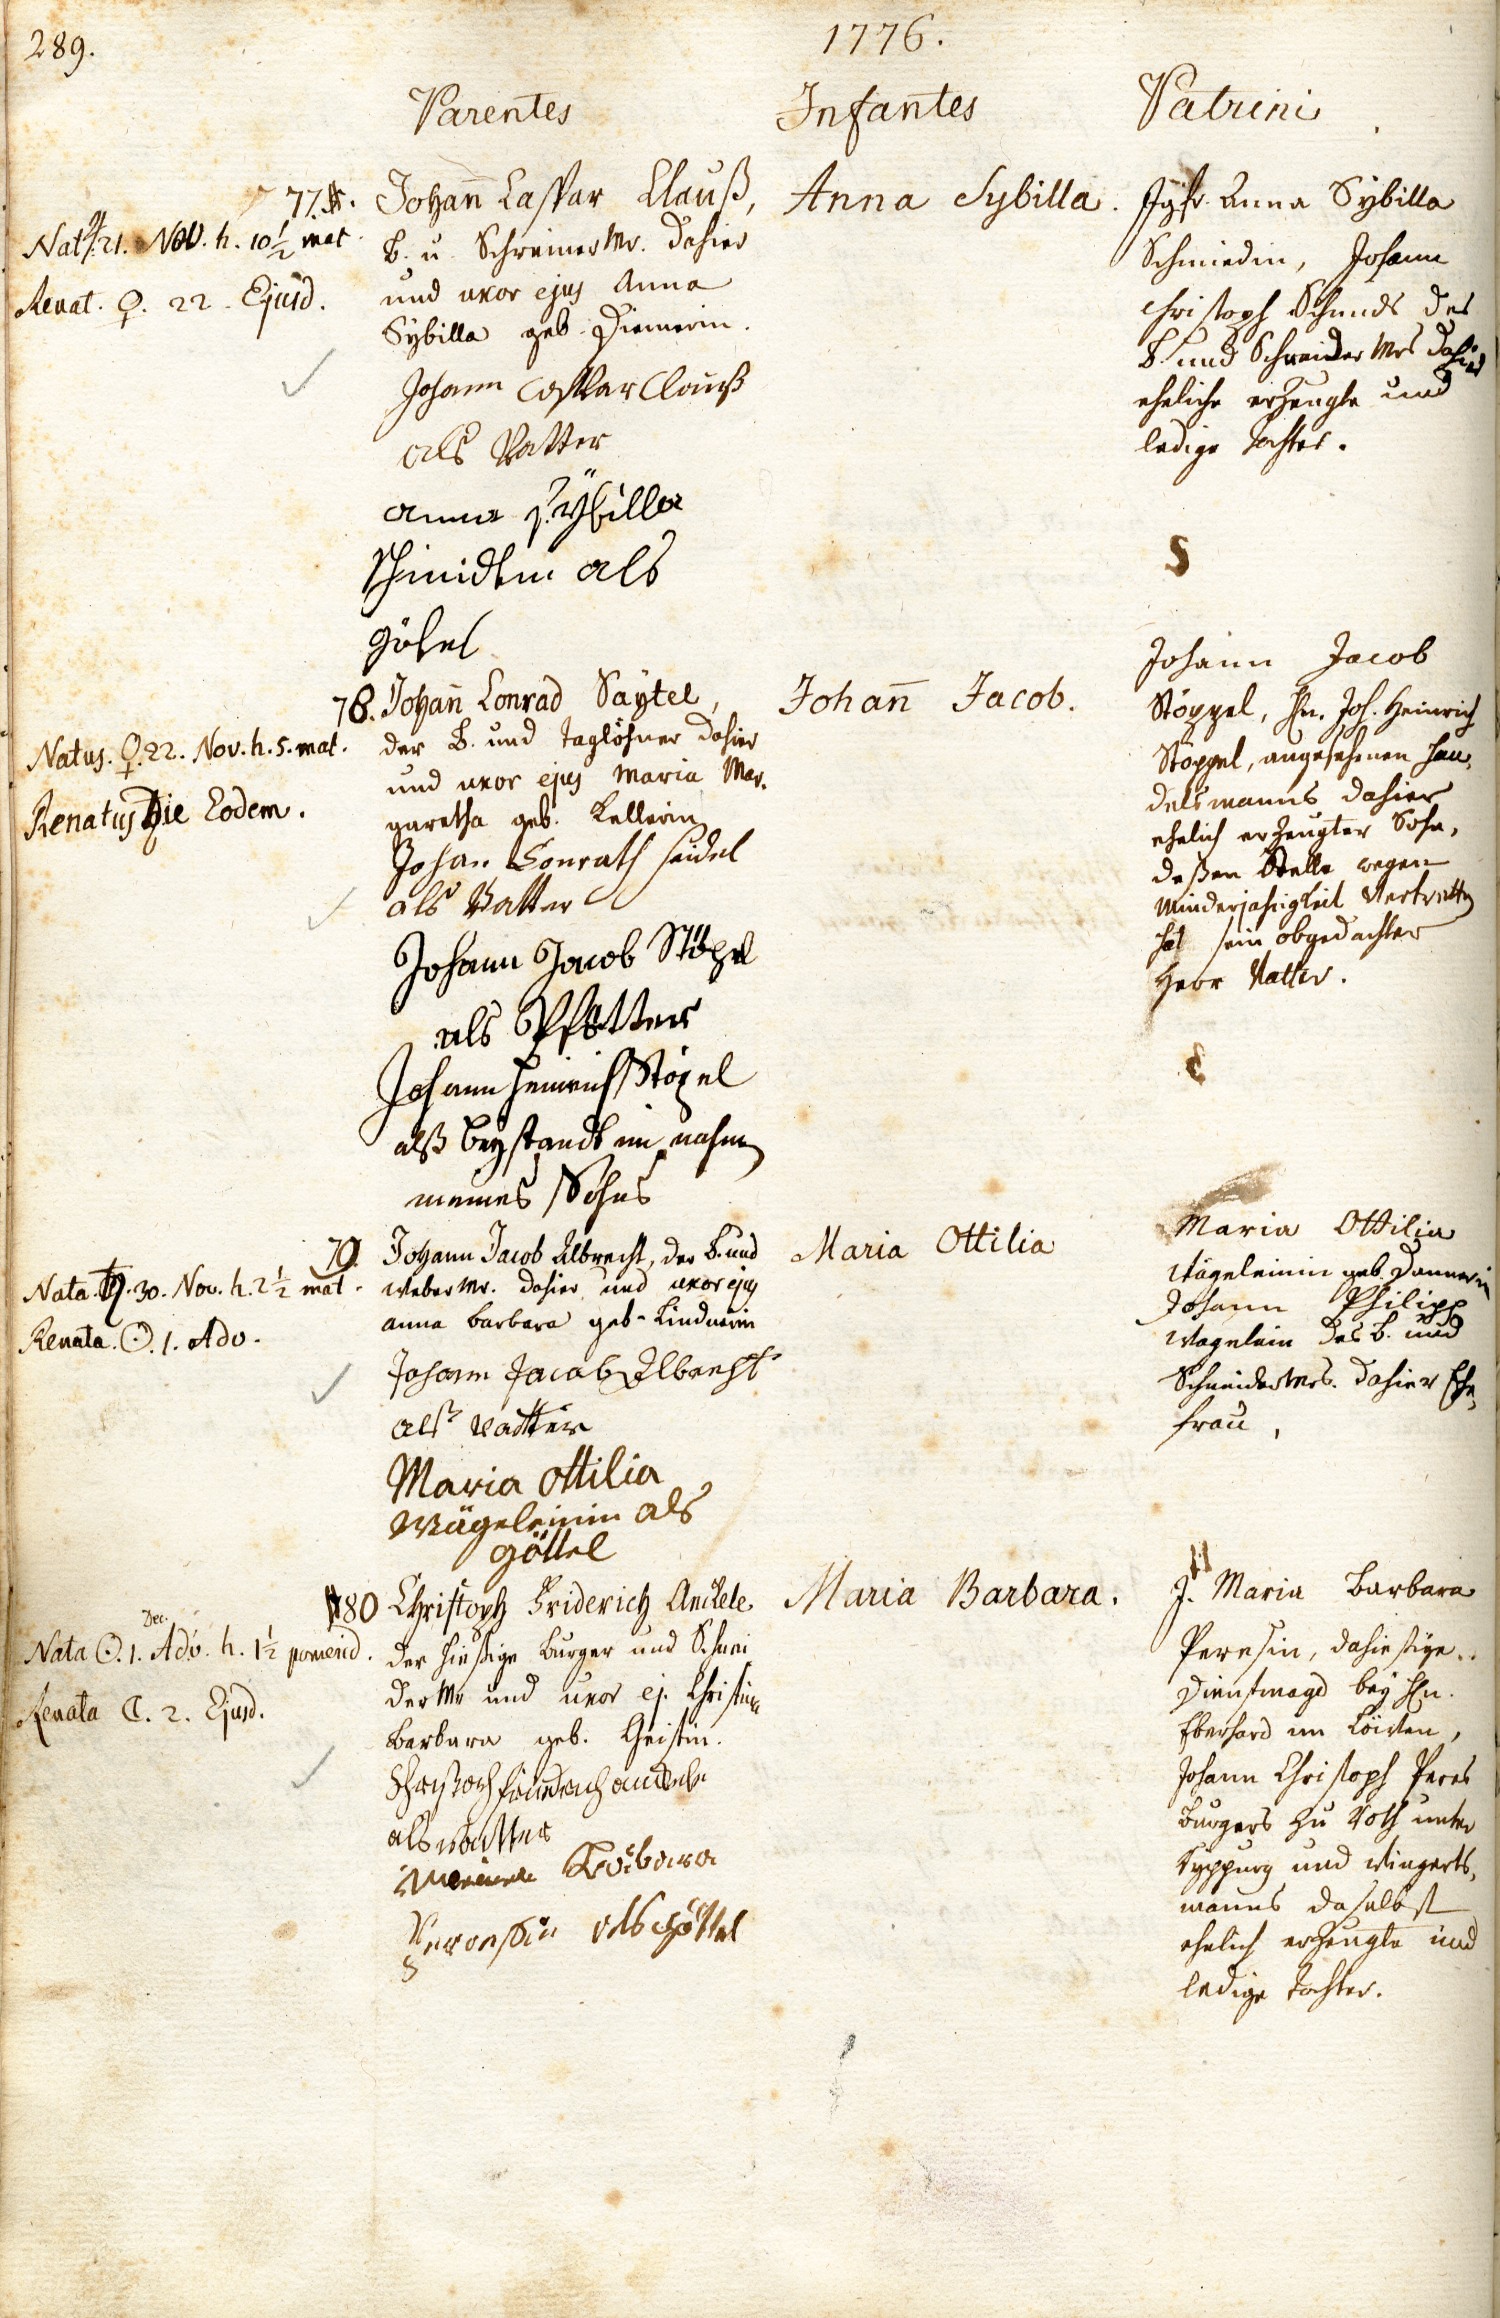 289.
1776.
Parentes
Infantes
Patrini
77.
Nat. ♃. 21. Nov. h. 10½ mat.
Renat. ♀. 22. Ejusd.
Johan̄ Caspar Clauß,
B. u. Schreiner Mr. dahier
und uxor ejus Anna
Sybilla geb. Diemerin.
Johann Caspar Clauß
als Vatter
anna Sÿbilla
Schmidtin als
Götel
Anna Sybilla.
Jgfr. Anna Sybilla
Schmiedin, Johann
Christoph Schmids des
B. und Schneider Mrs dahier
eheliche erzeugte und
ledige Tochter.
78.
Natus. ♀. 22. Nov. h. 5. mat.
Renatus Die Eodem.
Johan̄ Conrad Saytel,
der B. und Taglöhner dahier
und uxor ejus Maria Mar-
garetha geb. Kellerin
Johan Conrath Seidel
als Vatter
Johann Jacob Stöpel
als Pfetter
Johann Heinrich Stöpel
alß beystandt im nahmen
meines Sohns
Johan̄ Jacob.
Johann Jacob
Stöppel, Hn. Joh. Heinrich
Stöppel, angesehenen Han-
delsmanns dahier
ehelich erzeugter Sohn,
deßen Stelle wegen
Minderjährigkeit Vertretten
hat sein obgedachter
Herr Vatter.
79.
Nata. ♄. 30. Nov. h. 2½ mat.
Renata. ☉. 1. Adv.
Johann Jacob Albrecht, der B. und
Weber Mr. dahier und uxor ejus
anna barbara geb. Lindnerin
Johann Jacob Albrecht
alß vatter
Maria Ottilia
Wägeleinin als
göttel
Maria Ottilia
Maria Ottilia
Wägeleinin geb. Dannerin
Johann Philipp
Wägelein des B. und
Schneider Mrs. dahier Ehe-
frau,
80
Dec.
Nata ☉. 1. Adv. h. 1½ pomerid.
Renata ☾. 2. Ejusd.
Christoph Friderich Anckele
der hiesige Burger und Schnei
der Mr und uxor ej. Christina
Barbara geb. Geistin.
Christoph friederich anckele
als vatter
Maria Barbara
als göttel
Maria Barbara.
J. Maria Barbara
Peresin, dahiesige
Dienstmagd bey Hn.
Eberhard im Löwen,
Johann Christoph Peres
Burgers zu Roth unter
und Wingerts-
manns daselbst
ehelich erzeugte und
ledige Tochter.